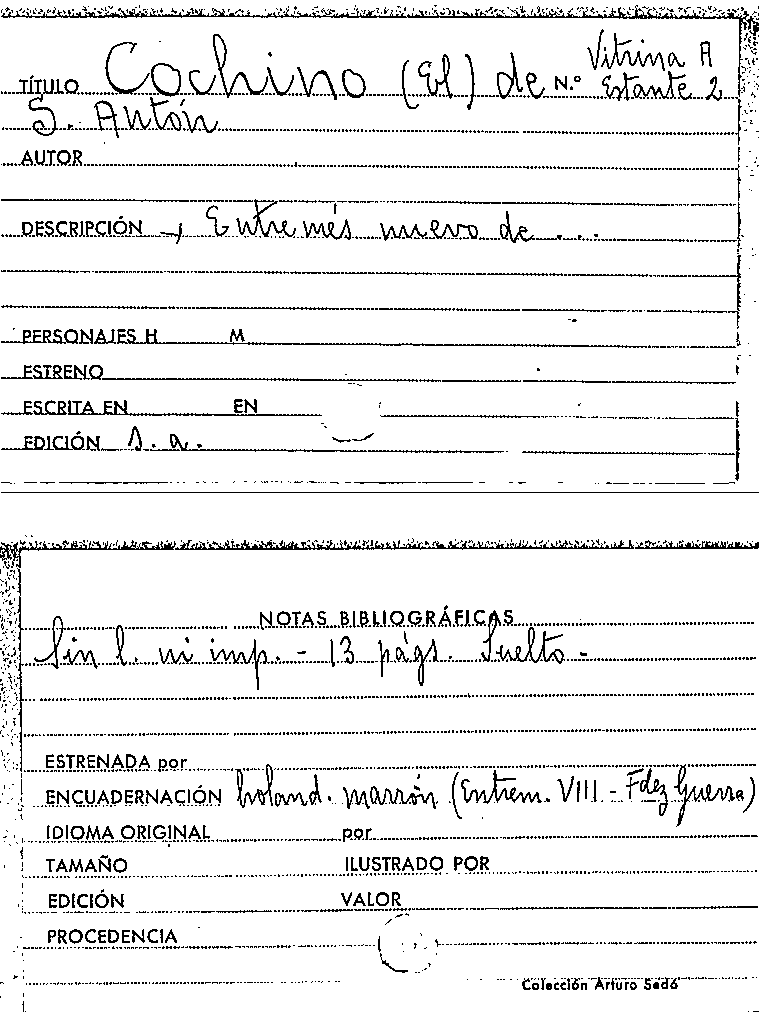 TÍTULO Cochino (El) de N.º Vitrina A
Estante 2
S. Antón
AUTOR
DESCRIPCIÓN -, Entremés nuevo de ...
PERSONAJES H M
ESTRENO
ESCRITA EN EN
EDICIÓN s. a.
NOTAS BIBLIOGRÁFICAS
Sin l. ni imp. - 13 págs. Suelto -
ESTRENADA por
ENCUADERNACIÓN holand. marrón (Entrem. VIII - Fdez Guerra)
IDIOMA ORIGINAL por
TAMAÑO ILUSTRADO POR
EDICIÓN VALOR
PROCEDENCIA
Colección Arturo Sedó